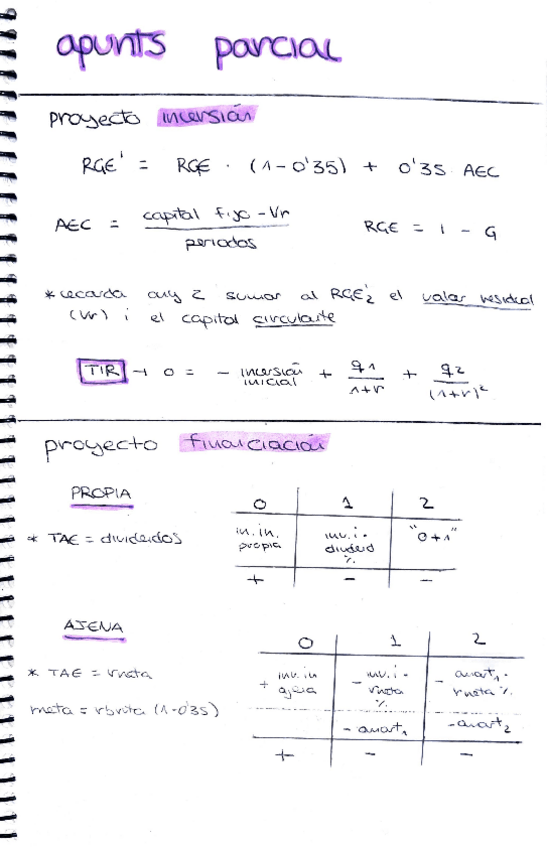 apunts parcial
proyecto inversión
RGE' = RGE · (1-0'35) + 0'35 AEC
AEC = capital fijo - Vr / periodos
RGE = I - G
* recorda any 2 sumar al RGE'2 el valor residual
(Vr) i el capital circulante
TIR → 0 = - inversión inicial + q1 / 1+r + q2 / (1+r)²
proyecto financiación
PROPIA
0 1 2
* TAE = dividendos
in. in. propia
inv. i. · dividend %
"0+1"
+ - -
AJENA
0 1 2
* TAE = rneta
rneta = rbruta (1-0'35)
+ inv. in ajena
- inv. i · rneta %
- amort1 · rneta %
- amort1
- amort2
+ - -